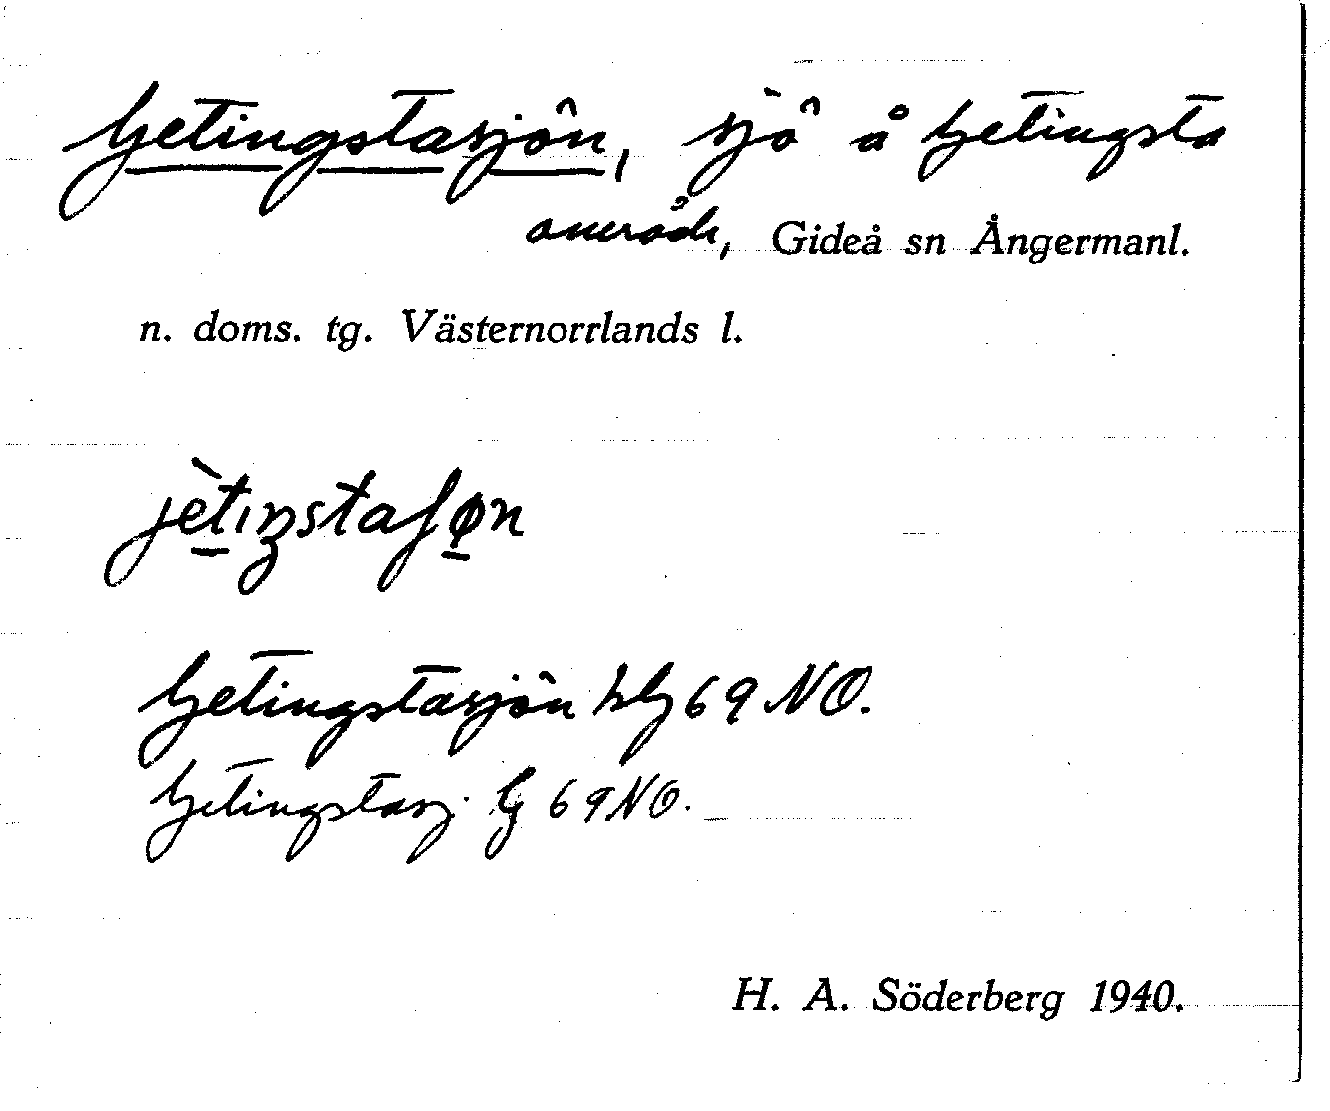 Getingstasjön, sjö å Getingsta
område, Gideå sn Ångermanl.
n. doms. tg. Västernorrlands l.
jètıŋstaʃøn
Getingstasjön hG 69 NO.
Getingstasj. G 69 NO.
H. A. Söderberg 1940.